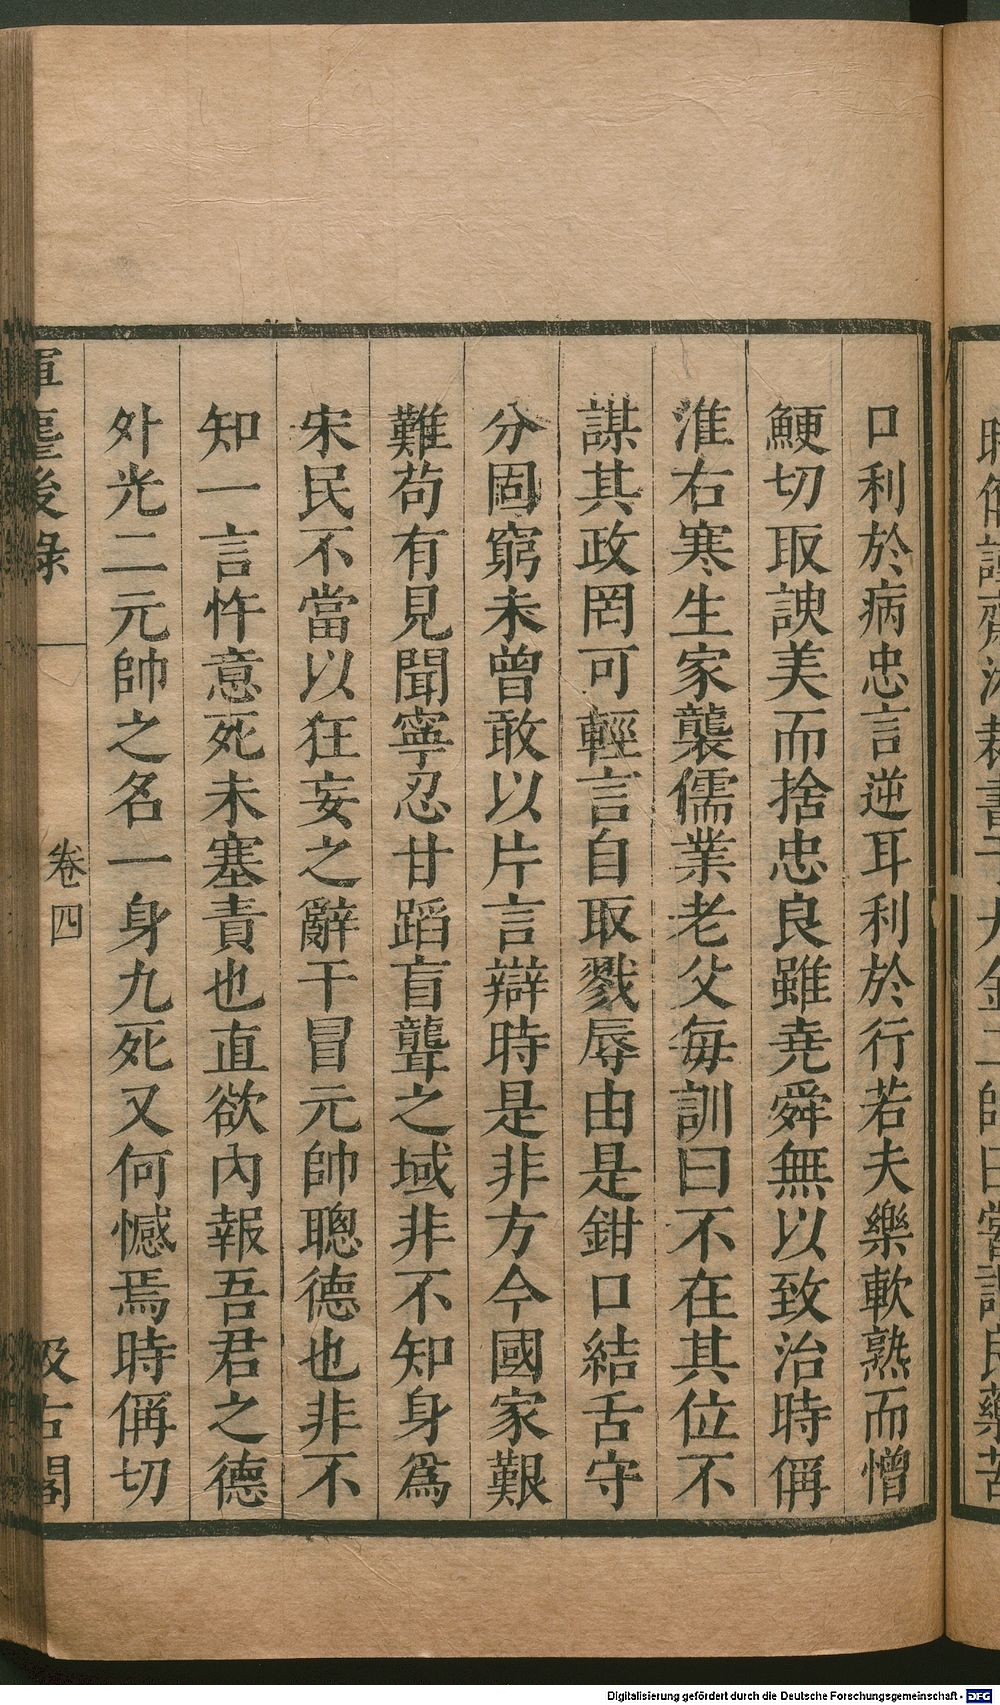 口利於病忠言逆耳利於行若夫樂軟熟而憎
鯁切取諛美而捨忠良雖尭舜無以致治時偁
淮右寒生家襲儒業老父每訓曰不在其位不
謀其政罔可輕言自取戮辱由是鉗口結舌守
分固窮未曾敢以片言辯時是非方今國家艱
難苟有見聞寧忍甘蹈盲聾之域非不知身爲
宋民不當以狂妄之辭干冒元帥聰德也非不
知一言忤意死未塞責也直欲內報吾君之德
外光二元帥之名一身九死又何憾焉時偁切
後錄
卷四
汲古閣
Digitalisierung gefördert durch die Deutsche Forschungsgemeinschaft - DFG